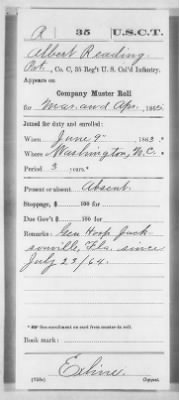 R 35 U.S.C.T.
Albert Reading
Pvt., Co. C, 35 Reg't U. S. Col'd Infantry.
Appears on
Company Muster Roll
for Mar. and Apr., 1865.
Joined for duty and enrolled:
When June 9, 1863.
Where Washington, N.C.
Period 3 years.*
Present or absent Absent
Stoppage, $ 100 for
Due Gov't $ 100 for
Remarks: Gen Hosp Jack
sonville, Fla. since
July 23/64.
* See enrollment on card from muster-in roll.
Book mark:
Exline
(358c) Copyist.